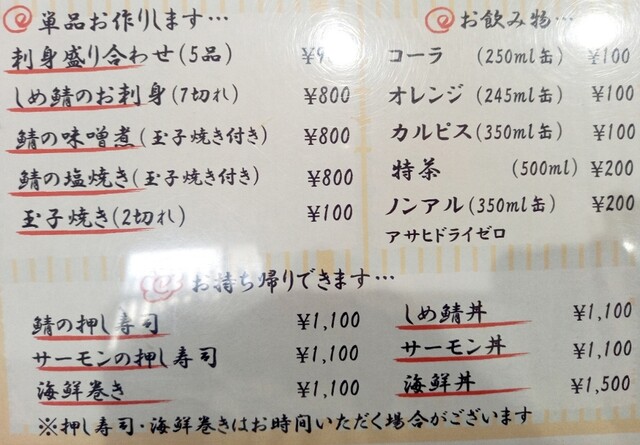 単品お作りします…
刺身盛り合わせ(5品)
しめ鯖のお刺身(7切れ) ¥800
鯖の味噌煮(玉子焼き付き) ¥800
鯖の塩焼き(玉子焼き付き) ¥800
玉子焼き(2切れ) ¥100
お飲み物…
コーラ (250ml缶) ¥100
オレンジ (245ml缶) ¥100
カルピス(350ml缶) ¥100
特茶 (500ml) ¥200
ノンアル(350ml缶) ¥200
アサヒドライゼロ
お持ち帰りできます…
鯖の押し寿司 ¥1,100
サーモンの押し寿司 ¥1,100
海鮮巻き ¥1,100
しめ鯖丼 ¥1,100
サーモン丼 ¥1,100
海鮮丼 ¥1,500
※押し寿司・海鮮巻きはお時間いただく場合がございます